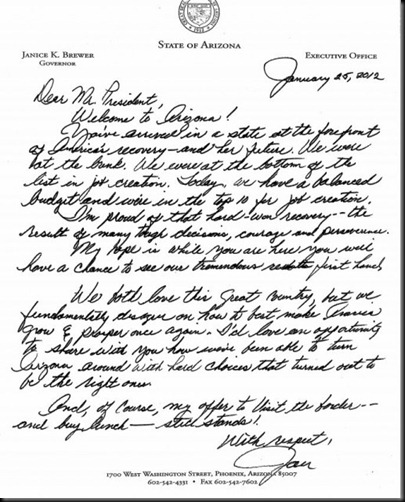 STATE OF ARIZONA
JANICE K. BREWER
GOVERNOR
EXECUTIVE OFFICE
January 25, 2012
Dear Mr. President,
Welcome to Arizona!
You've arrived in a state at the forefront
of America's recovery - and her future. We were
on the brink. We were at the bottom of the
list in job creation. Today, we have a balanced
budget and we're in the top 10 for job creation.
I'm proud of that hard-won recovery -- the
result of many tough decisions, courage and perseverance.
My hope is while you are here you will
have a chance to see our tremendous results first hand.
We both love this great country, but we
fundamentally disagree on how to best make America
grow & prosper once again. I'd love an opportunity
to share with you how we've been able to turn
Arizona around with hard choices that turned out to
be the right ones.
And, of course, my offer to visit the border --
and buy lunch - still stands!
With respect,
Jan
1700 WEST WASHINGTON STREET, PHOENIX, ARIZONA 85007
602-542-4331 • FAX 602-542-7602